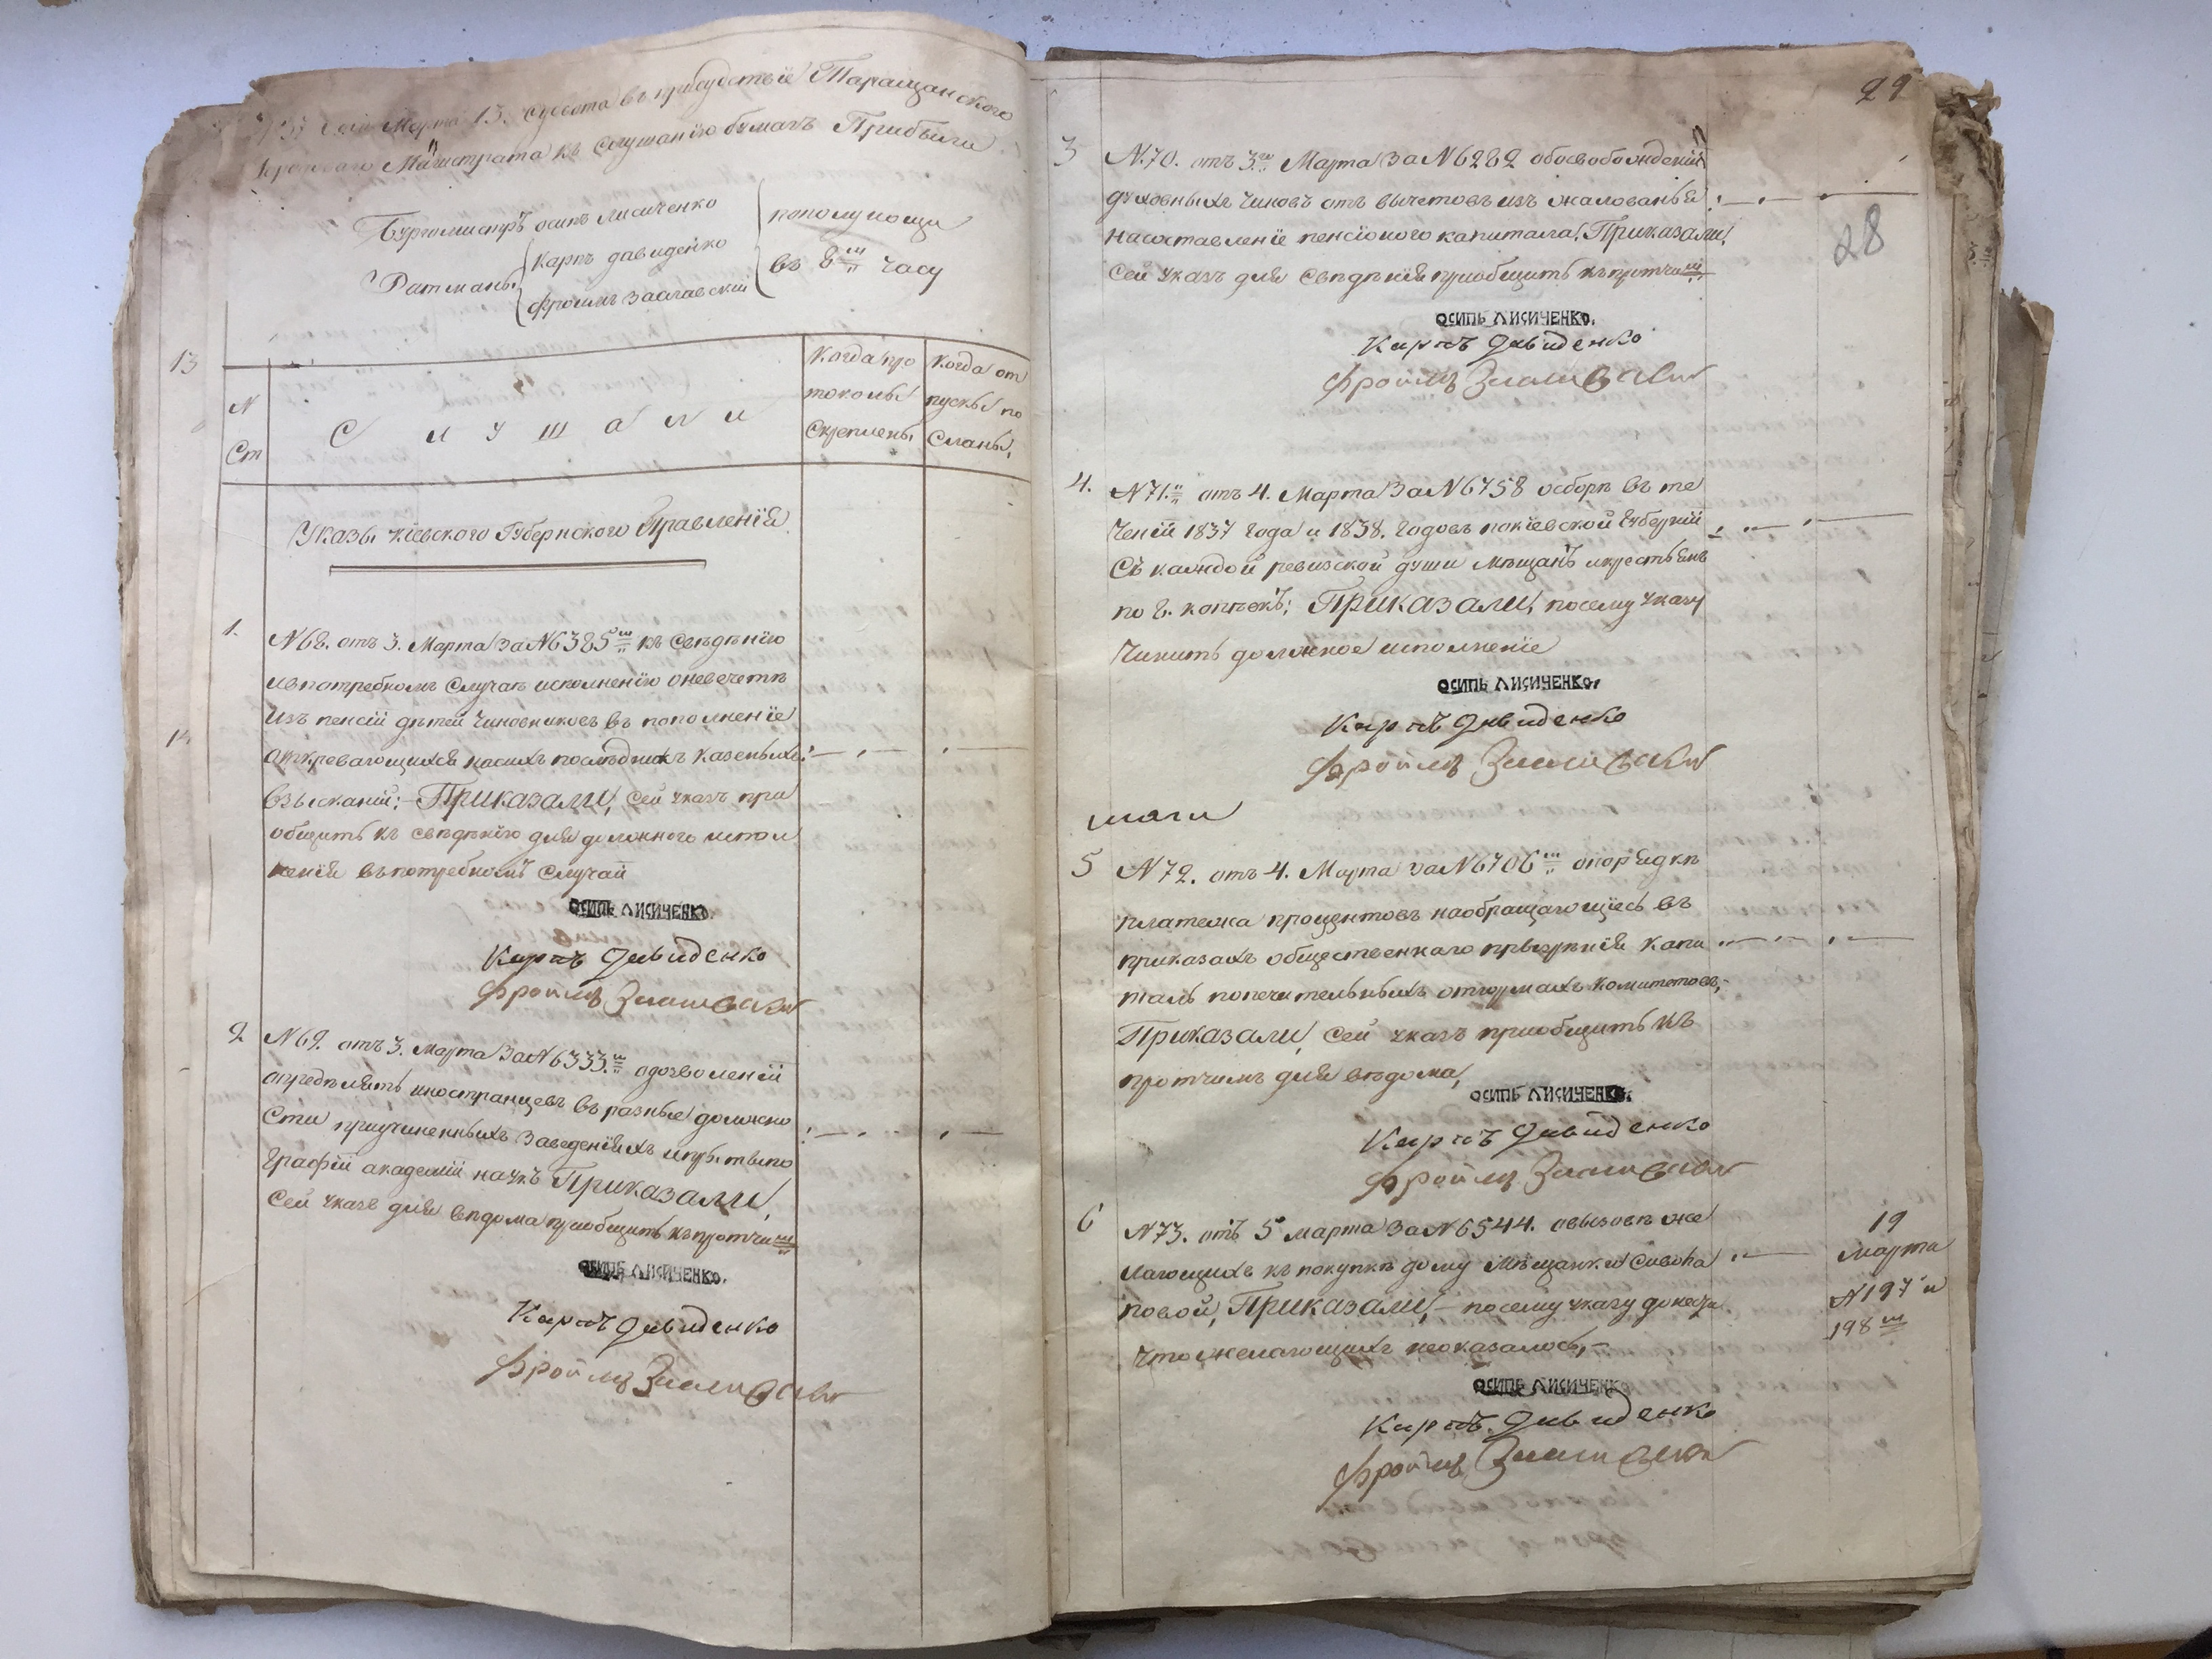 Марта 13. Суббота въ присудствіе Таращанского
Магистрата къ слушанію бумагъ Прибыли
Бургомистръ осипъ лисиченко
Ратманы
карпъ давиденко
фроимъ Заславскій
пополуноши
въ 8ш часу
13
N
Ст
С л у ш а л и
Когда про
токолы
Скреплены
Когда от
пуски по
Сланы,
Указы кіевского Губернского Правленія
1.
N68. отъ 3. Марта За N6385ш къ Свѣдѣнію
ивпотребномъ Случаѣ исполненію оневечетѣ
Изъ пенсіи дѣтей Чиновниковъ въ пополненіе
насихъ послѣднихъ казеныхъ
взысканій; Приказали, Сей указъ при
общить къ свѣдѣнію для должного испол
ненія въпотребномъ Случаи
ОСИПЪ ЛИСИЧЕНКО.
Карпъ Давиденко
Фроимъ Заславски
2
N69. отъ 3. Марта За N6333.ш одозволеніи
определять иностранцевъ въ разные должно
Сти приучиненныхъ Заведеніяхъ ипри типо
Графіи академіи наукъ Приказали,
Сей указъ для вѣдома приобщить къпротчи м
ОСИПЪ ЛИСИЧЕНКО.
Карпъ Давиденко
Фроимъ Заславски
29
28
3
N.70. отъ 3.го Марта За N6282 обосвобождении
духовныхъ Чиновъ отъ вычетовъ изъ жалованья
насоставленіе пенсіоного капитала, Приказали,
Сей указъ для Свѣдѣнія приобщить къпротчим
ОСИПЪ ЛИСИЧЕНКО.
Карпъ Давиденко
Фроимъ Заславски
4.
N71. отъ 4. Марта За N6758 осборѣ въ те
Ченіи 1837 Года и 1838. Годовъ покіевской Губерніи
Съ каждой ревизской души мѣщанъ икрестьянъ
по 8. копѣекъ; Приказали, посему указу
Чинить должное исполненіе
ОСИПЪ ЛИСИЧЕНКО,
Карпъ Давиденко
Фроимъ Заславски
5
N72. отъ 4. Марта за N6706ш опорядкѣ
платежа процентовъ наобращающіесь въ
приказахъ общественнаго презрѣнія капи
талъ попечительныхъ отюрмахъ комитетовъ,
Приказали, Сей указъ приобщить къ
протчимъ для вѣдома,
ОСИПЪ ЛИСИЧЕНКО.
Карпъ Давиденко
Фроимъ Заславски
6
N73. отъ 5 марта За N6544. овызовѣ же
лающихъ къ покупкѣ дому мѣщанки
повой, Приказали, посему указу донесть
Что желающихъ неоказалось,
19
Марта
N197 и
198ш
ОСИПЪ ЛИСИЧЕНКО
Карпъ Давиденко
Фроимъ Заславски